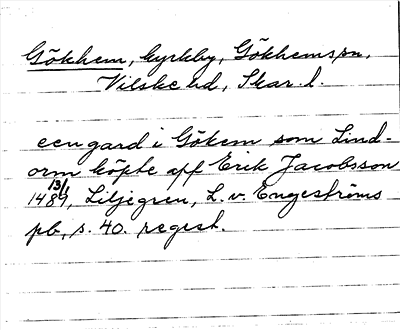 Gökhem, kyrkby, Gökhems sn,
Vilske hd, Skar. l.
een gard i Gökem som Lind-
orm köpte aff Erik Jacobsson
13/1
1489, Liljegren, L. v. Engeströms
pb, s. 40. regest.